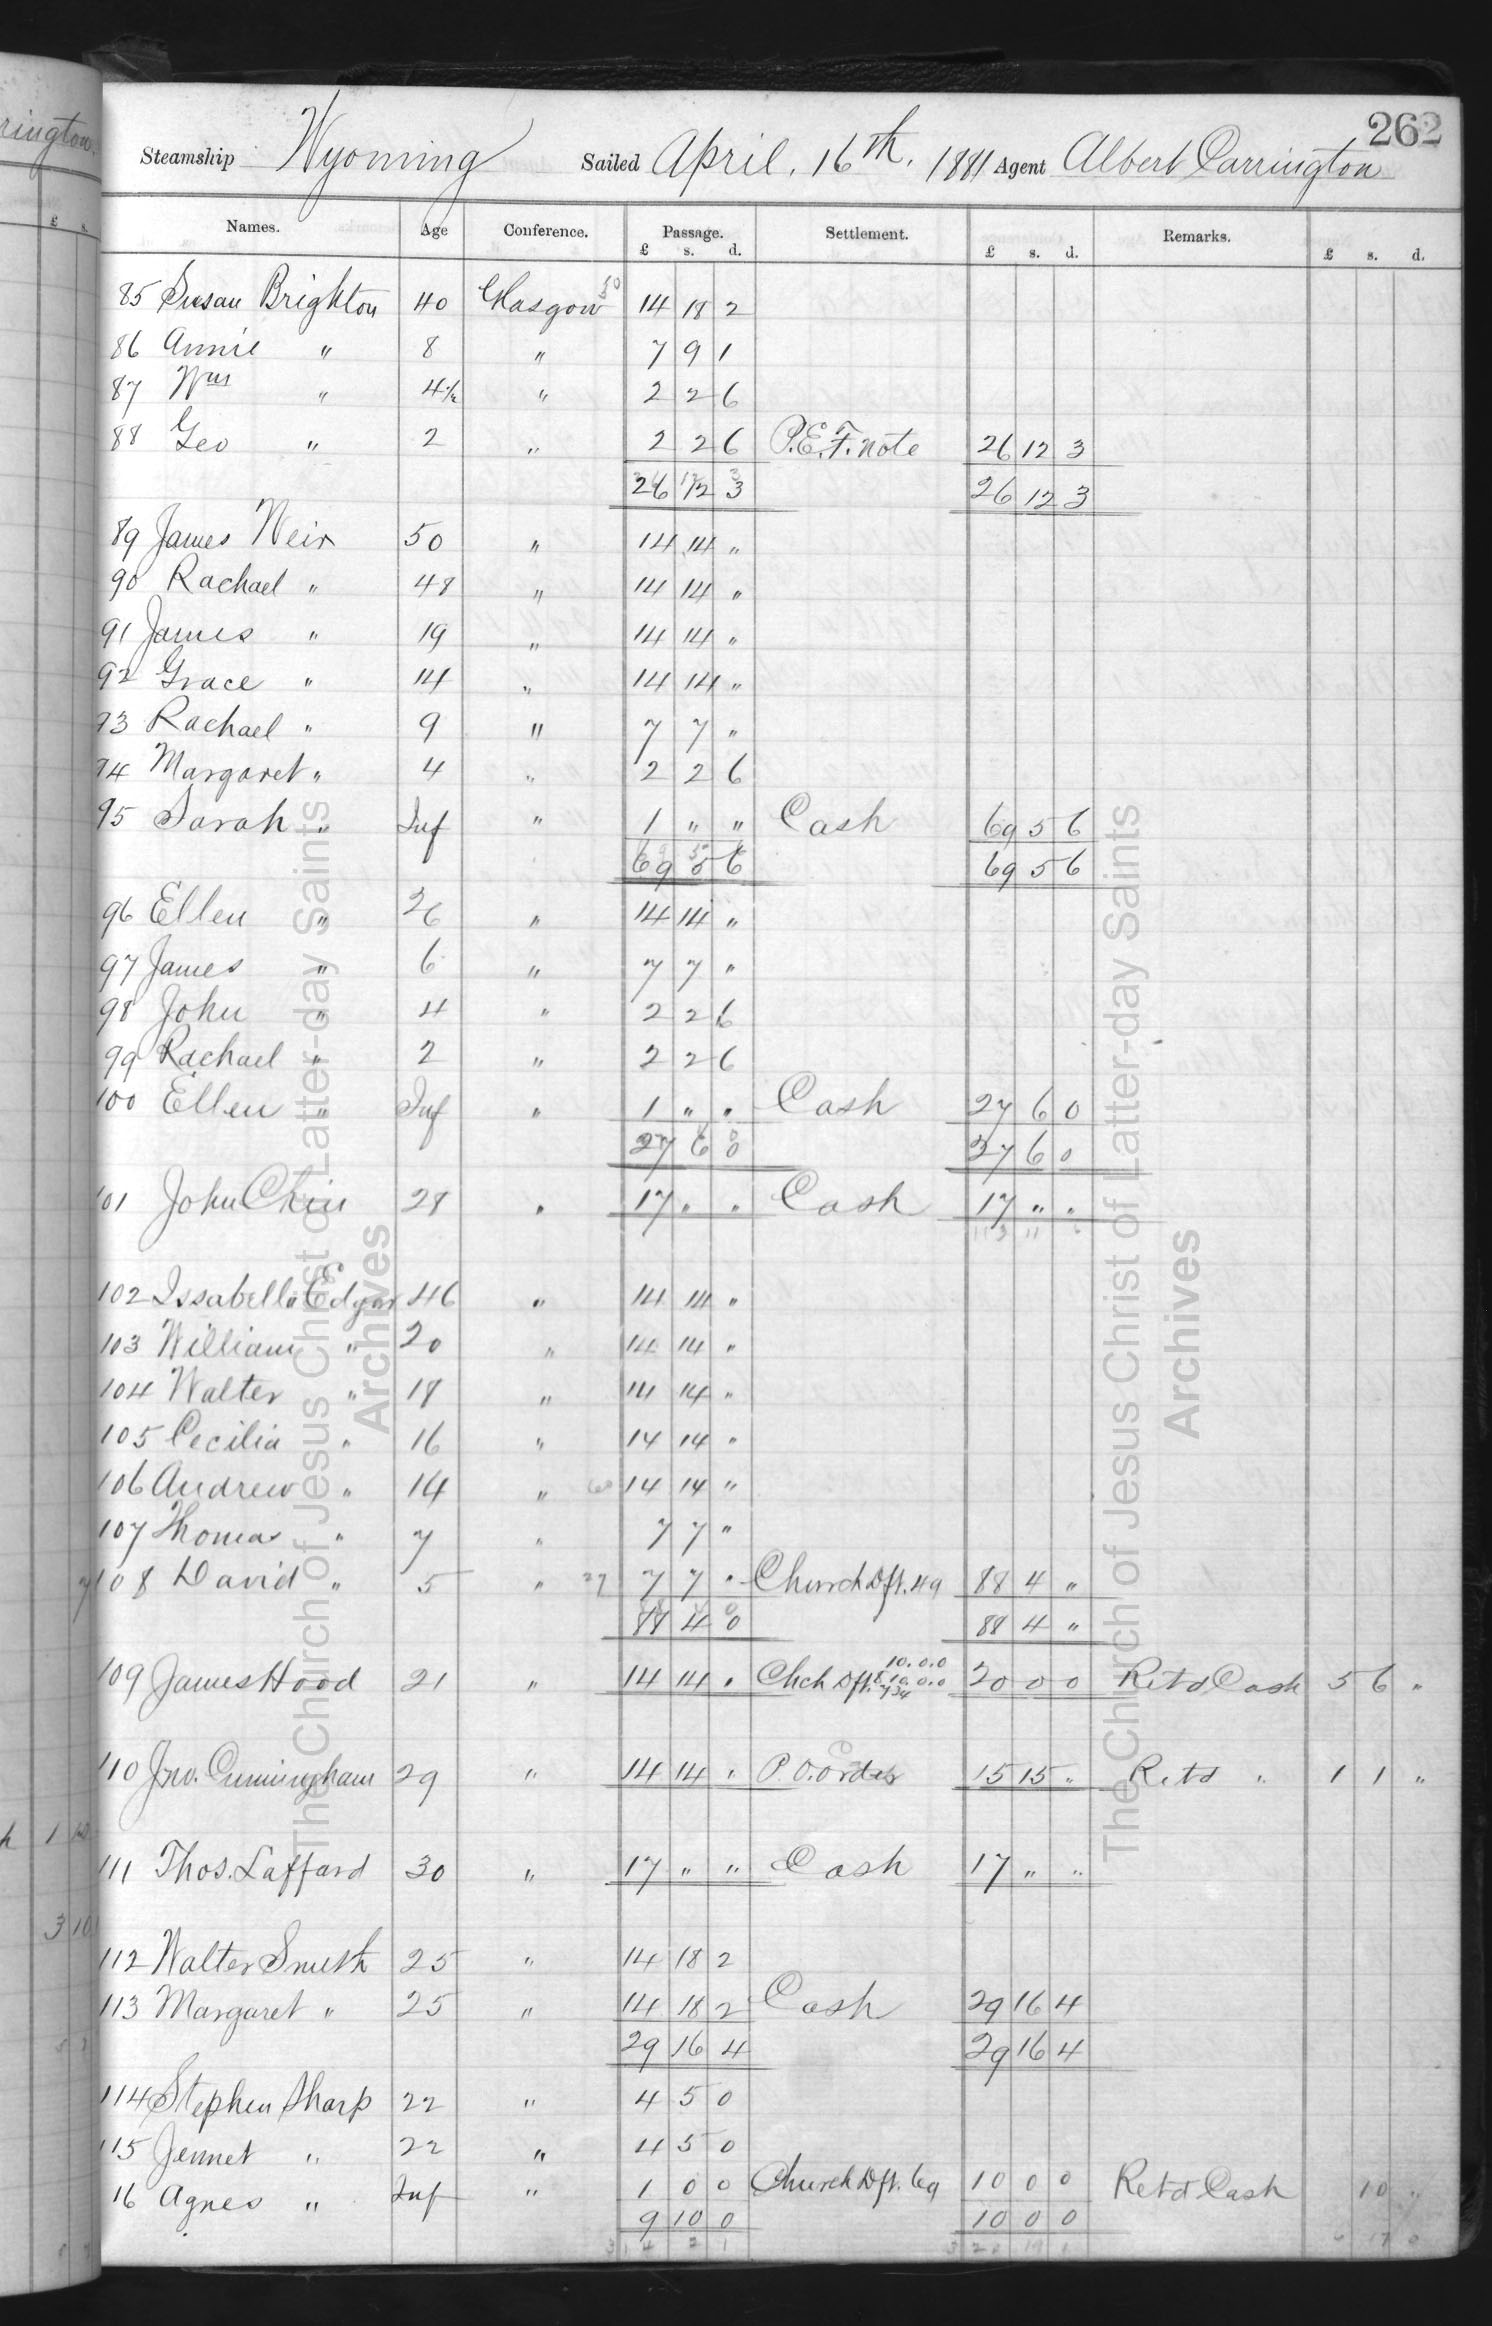 262
Steamship Wyoming Sailed April. 16th. 1881 Agent Albert Carrington
Names. Age Conference. Passage. £ s. d. Settlement. £ s. d. Remarks. £ s. d.
85 Susan Brighton 40 Glasgow 14 18 2
86 Annie " 8 " 7 9 1
87 Wm " 4½ " 2 2 6
88 Geo " 2 " 2 2 6 P.E.F. note 26 12 3
26 12 3 26 12 3
89 James Weir 50 " 14 14 "
90 Rachael " 48 " 14 14 "
91 James " 19 " 14 14 "
92 Grace " 14 " 14 14 "
93 Rachael " 9 " 7 7 "
94 Margaret " 4 " 2 2 6
95 Sarah " Inf " 1 " " Cash 69 5 6
69 5 6 69 5 6
96 Ellen " 26 " 14 14 "
97 James " 6 " 7 7 "
98 John " 4 " 2 2 6
99 Rachael " 2 " 2 2 6
100 Ellen " Inf " 1 " " Cash 27 6 0
27 6 0 27 6 0
101 John 28 " 17 " " Cash 17 " "
102 Issabella Edgar 46 " 14 14 "
103 William " 20 " 14 14 "
104 Walter " 18 " 14 14 "
105 Cecilia " 16 " 14 14 "
106 Andrew " 14 " 14 14 "
107 Thomas " 7 " 7 7 "
108 David " 5 " 7 7 " Church Dft. 49 88 4 "
88 4 0 88 4 "
109 James Hood 21 " 14 14 " Chch Dft. 10.0.0 20 0 0 Retd Cash 5 6 "
110 Jno. Cunningham 29 " 14 14 " P.O. order 15 15 " Retd " 1 1 "
111 Thos. Laffard 30 " 17 " " Cash 17 " "
112 Walter Smith 25 " 14 18 2
113 Margaret " 25 " 14 18 2 Cash 29 16 4
29 16 4 29 16 4
114 Stephen Sharp 22 " 4 5 0
115 Jennet " 22 " 4 5 0
16 Agnes " Inf " 1 0 0 Church Dft. 69 10 0 0 Retd Cash 10 "
9 10 0 10 0 0
The Church of Jesus Christ of Latter-day Saints
Archives
The Church of Jesus Christ of Latter-day Saints
Archives